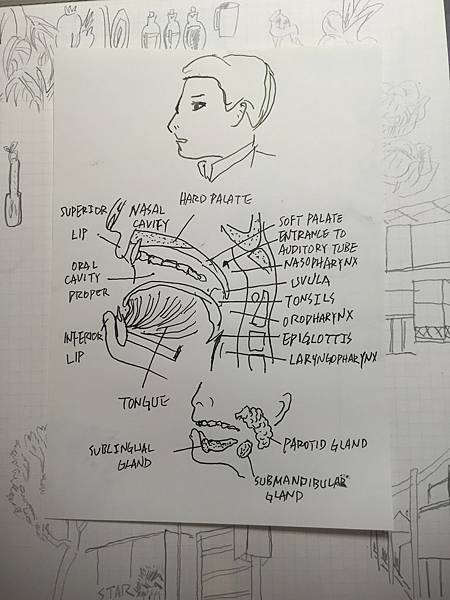 HARD PALATE
SUPERIOR
LIP
NASAL
CAVITY
SOFT PALATE
ENTRANCE TO
AUDITORY TUBE
NASOPHARYNX
ORAL
CAVITY
PROPER
UVULA
TONSILS
OROPHARYNX
INFERIOR
LIP
EPIGLOTTIS
LARYNGOPHARYNX
TONGUE
SUBLINGUAL
GLAND
PAROTID GLAND
SUBMANDIBULAR
GLAND
STAR